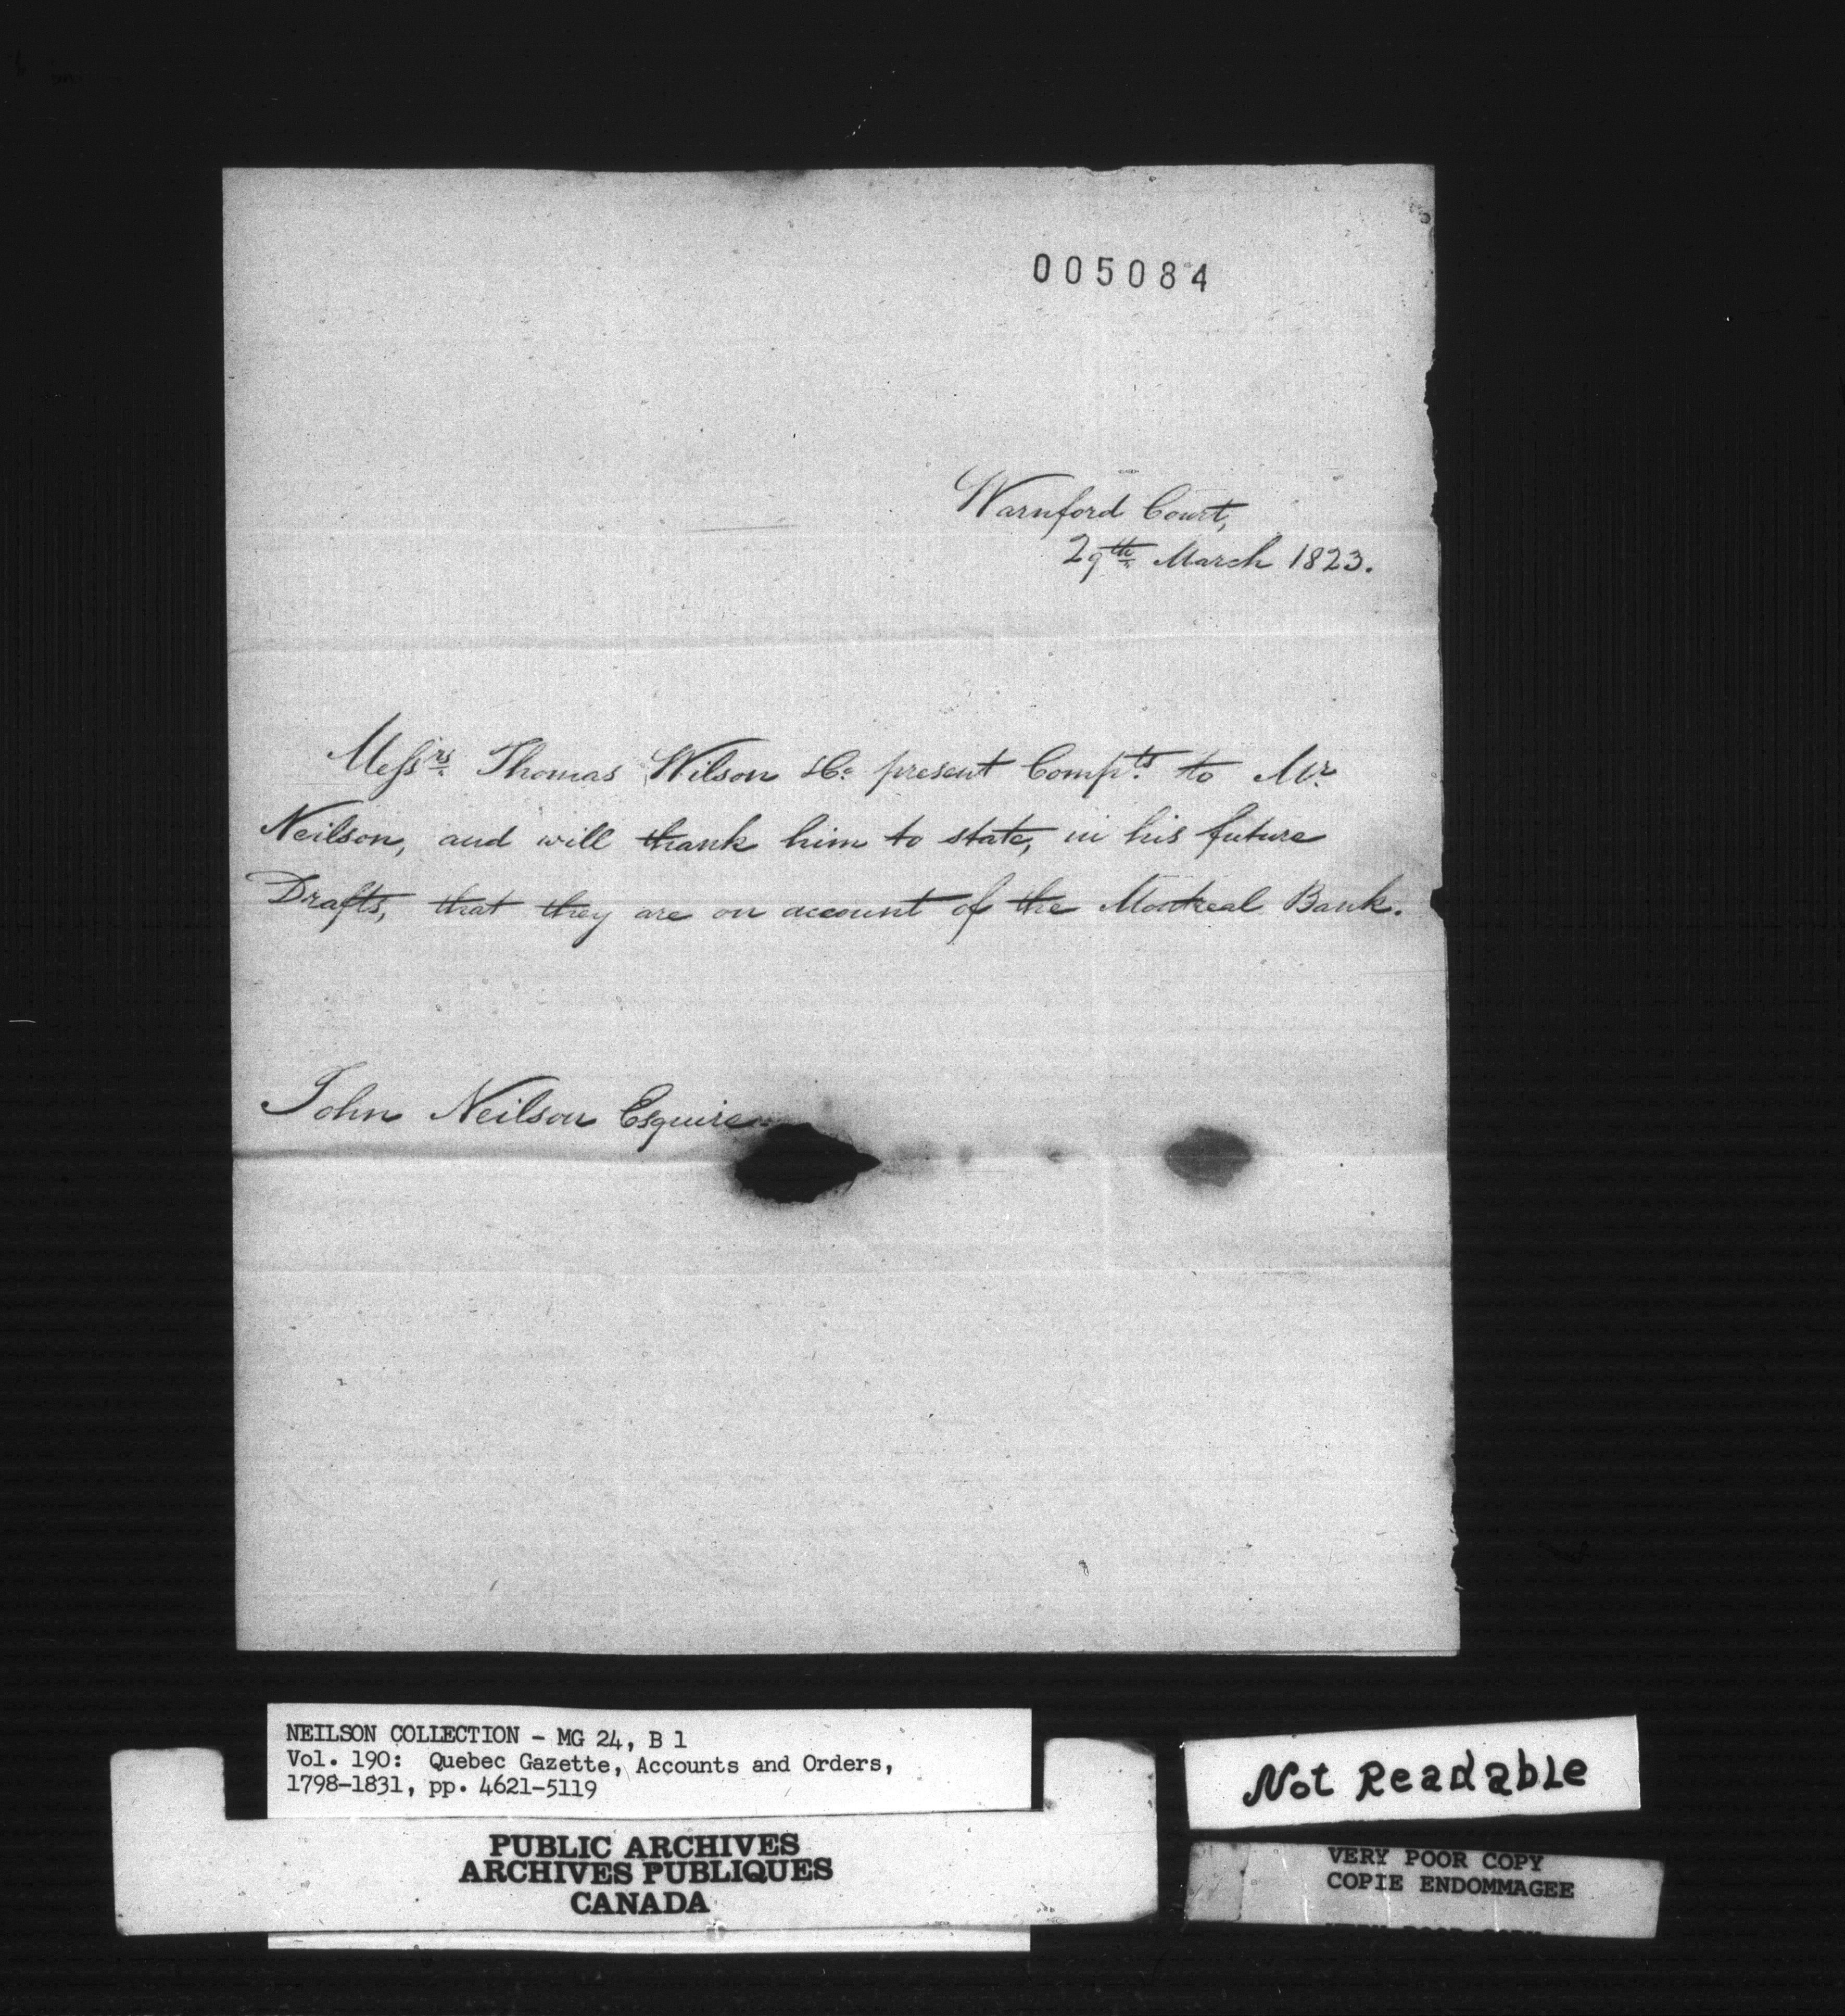 005084
Warnford Court,
29th March 1823.
Messrs Thomas Wilson & Co. present Compts to Mr
Neilson, and will thank him to state, in his future
Drafts, that they are on account of the Montreal Bank.
John Neilson Esquire
NEILSON COLLECTION - MG 24, B 1
Vol. 190: Quebec Gazette, Accounts and Orders,
1798-1831, pp. 4621-5119
PUBLIC ARCHIVES
ARCHIVES PUBLIQUES
CANADA
Not Readable
VERY POOR COPY
COPIE ENDOMMAGEE